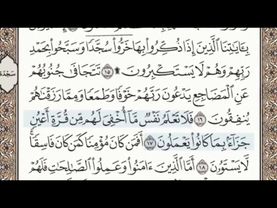 بِـَٔايَـٰتِنَا ٱلَّذِينَ إِذَا ذُكِّرُوا۟ بِهَا خَرُّوا۟ سُجَّدًا وَسَبَّحُوا۟ بِحَمْدِ
رَبِّهِمْ وَهُمْ لَا يَسْتَكْبِرُونَ ۩ ١٥ تَتَجَافَىٰ جُنُوبُهُمْ
عَنِ ٱلْمَضَاجِعِ يَدْعُونَ رَبَّهُمْ خَوْفًا وَطَمَعًا وَمِمَّا رَزَقْنَـٰهُمْ
يُنفِقُونَ ١٦ فَلَا تَعْلَمُ نَفْسٌ مَّآ أُخْفِىَ لَهُم مِّن قُرَّةِ أَعْيُنٍ
جَزَآءًۢ بِمَا كَانُوا۟ يَعْمَلُونَ ١٧ أَفَمَن كَانَ مُؤْمِنًا كَمَن كَانَ فَاسِقًا
لَّا يَسْتَوُۥنَ ١٨ أَمَّا ٱلَّذِينَ ءَامَنُوا۟ وَعَمِلُوا۟ ٱلصَّـٰلِحَـٰتِ فَلَهُمْ
سَجْدَة